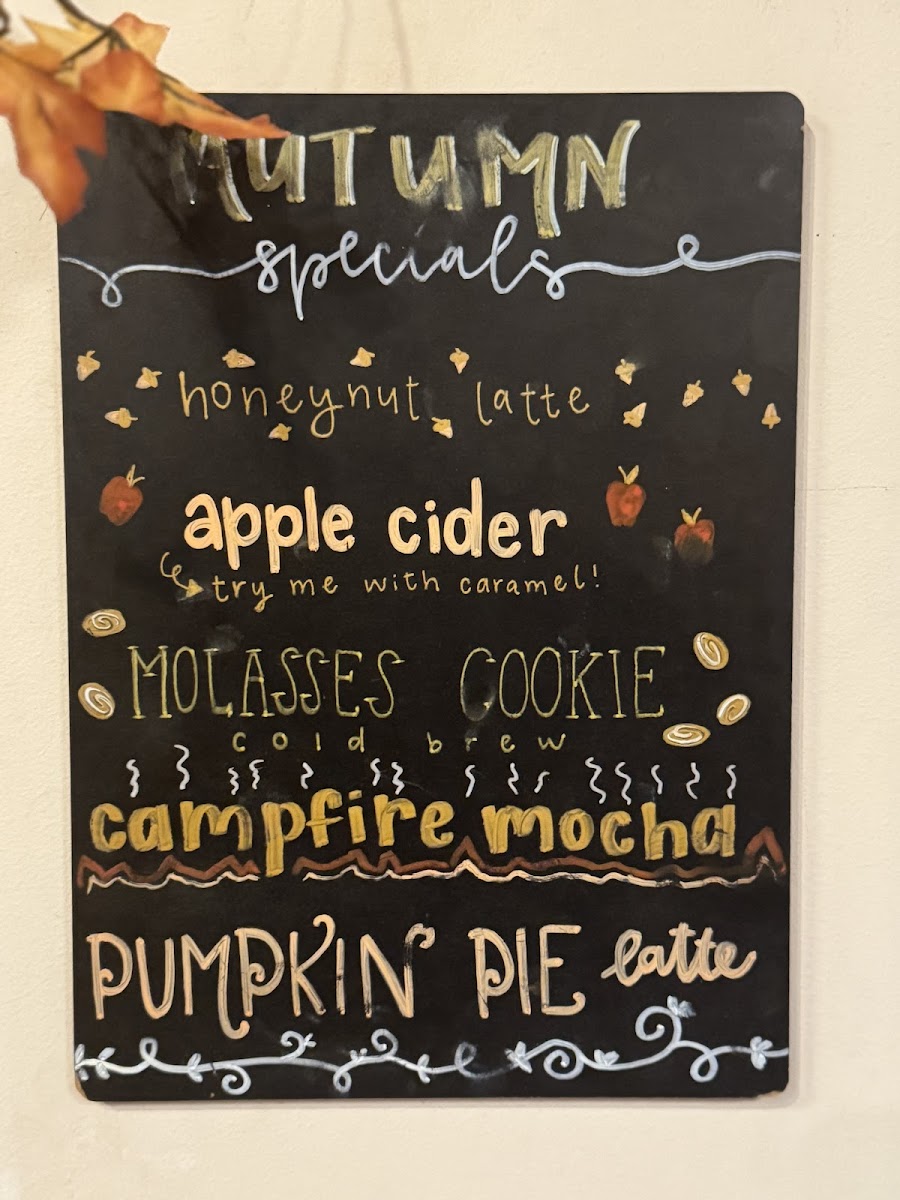 AUTUMN
specials
honeynut latte
apple cider
try me with caramel!
MOLASSES COOKIE
cold brew
campfire mocha
PUMPKIN PIE latte